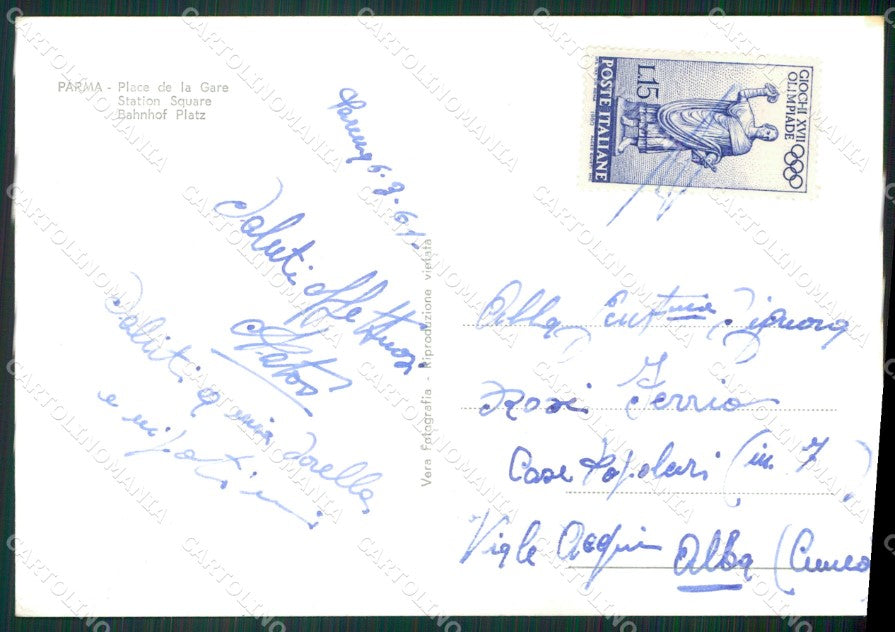 PARMA - Place de la Gare
Station Square
Bahnhof Platz
Parma 6.9.61.
Saluti affettuosi
Saluti a mia sorella
e nipotini
Vera Fotografia - Riproduzione vietata
GIOCHI XVII
OLIMPIADE
L.15
POSTE ITALIANE
1960
Alla Gent.ma Signora
Rosi Ferrio
Case Popolari (in. 7
Viale Acqui Alba (Cuneo
CARTOLINOMANIA